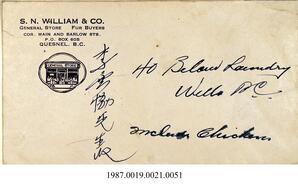 S. N. WILLIAM & CO.
GENERAL STORE FUR BUYERS
COR. MAIN AND BARLOW STS.
P.O. BOX 605
QUESNEL, B.C.
GENERAL STORE
先生
Laundry
Wells BC.
include Chickens
1987.0019.0021.0051